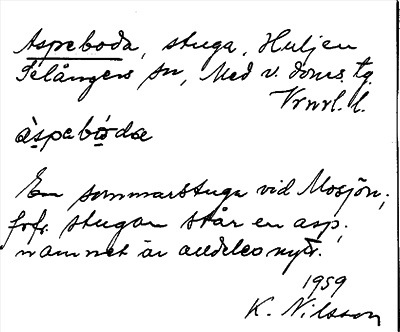 Aspeboda, stuga, Huljen
Selångers sn, Med v. doms. tg.
Vrnrl. l.
àspebòdα
En sommarstuga vid Mosjön;
frfr. stugan står en asp;
namnet är alldeles nytt.
1959
K. Nilsson